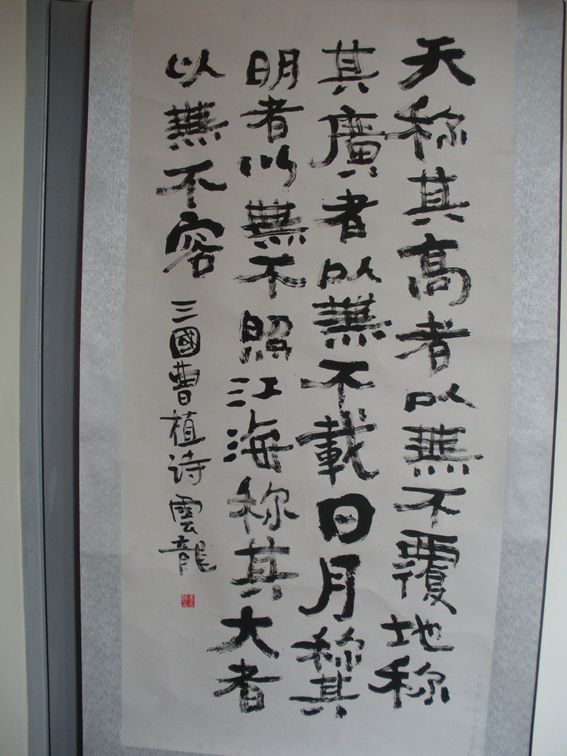 天称其高者以無不覆地称
其廣者以無不載日月称其
明者以無不照江海称其大者
以無不容 三國曹植诗雲龍